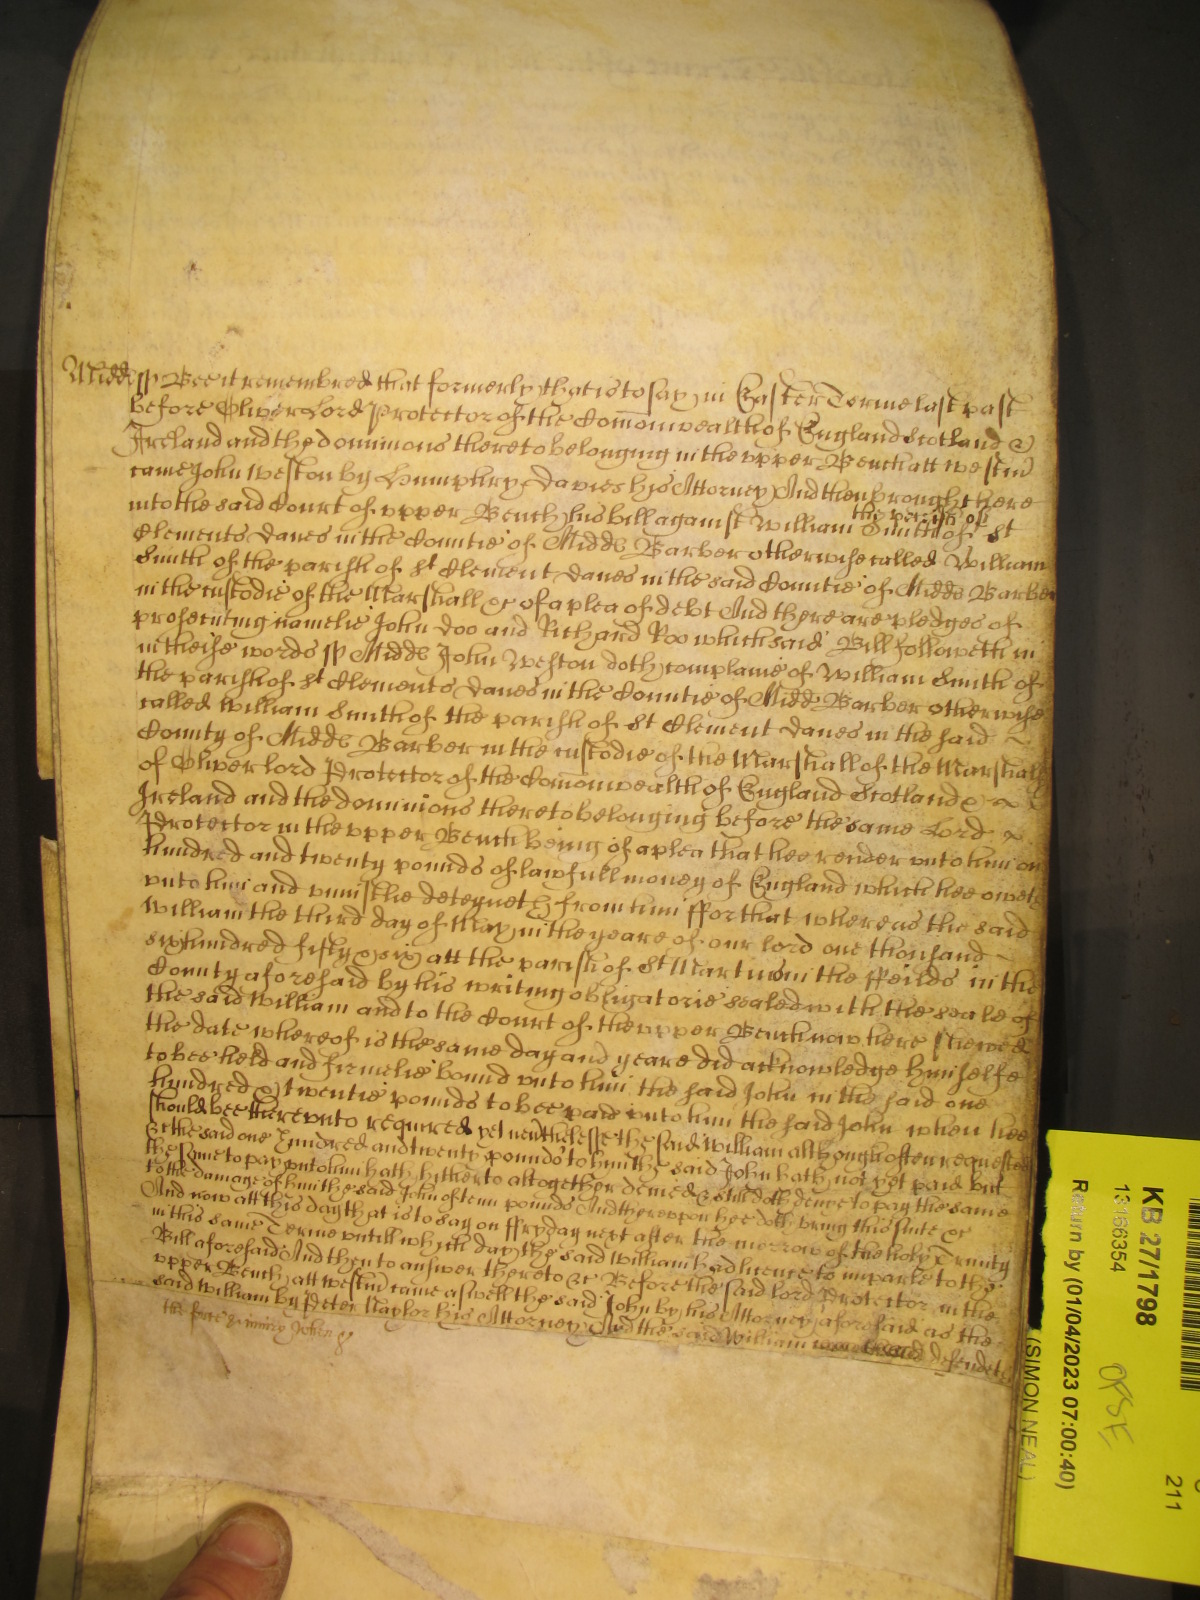 Midds ss Bee it remembred that formerly that is to say in Easter Terme last past
before Oliver Lord Protector of the Comonwealth of England Scotland &
Ireland and the dominions thereto belonging in the upper Bench att Westm
came John Weston by Humphry Davies his Attorney And then brought here
the parish of
into the said Court of upper Bench his bill against William Smith of St
Clements Danes in the Countie of Midds Barber otherwise called William
Smith of the parish of St Clement Danes in the said Countie of Midds Barber
in the custodie of the Marshall &c of a plea of debt And there are pledges of
prosecuting namelie John Doo and Richard Roo which said Bill followeth in
theise words ss Midds John Weston doth complaine of William Smith of
the parish of St Clements Danes in the Countie of Midd Barber otherwise
called William Smith of the parish of St Clement Danes in the said
County of Midds Barber in the custodie of the Marshall of the Marshals
of Oliver lord Protector of the Comonwealth of England Scotland &
Ireland and the dominions thereto belonging before the same Lord
Protector in the upper Bench being of a plea that hee render unto him on
hundred and twenty pounds of lawfull money of England which hee oweth
unto him and uniustlie deteyneth from him ffor that whereas the said
William the third day of May in the yeare of our lord one thousand
six hundred fifty & six att the parish of St Martins in the ffeilds in the
County aforesaid by his writing obligatorie sealed with the seale of
the said William and to the Court of the upper Bench now here shewed
the date whereof is the same day and yeare did acknowledge himselfe
to bee held and firmelie bound unto him the said John in the said one
hundred & twentie pounds to bee paid unto him the said John when hee
should bee thereunto required yet neverthelesse the said William although often requested
&c the said one hundred and twenty pounds to him the said John hath not yet paid but
the same to pay unto him hath hitherto altogether denied & still doth denie to pay the same
to the damage of him the said John of tenn pounds And thereupon hee doth bring this suite &c
And now att this day that is to say on ffryday next after the morrow of the holy Trinity
in this same Terme untill which day the said William had licence to imparle to the
Bill aforesaid And then to answer thereto &c Before the said lord Protector in the
upper Bench att Westm came aswell the said John by his Attorney aforesaid as the
said William by Peter Naylor his Attorney And the said William defendeth
the force & iniury when &c
KB 27/1798
13166354
Return by (01/04/2023 07:00:40)
(SIMON NEAL)
211